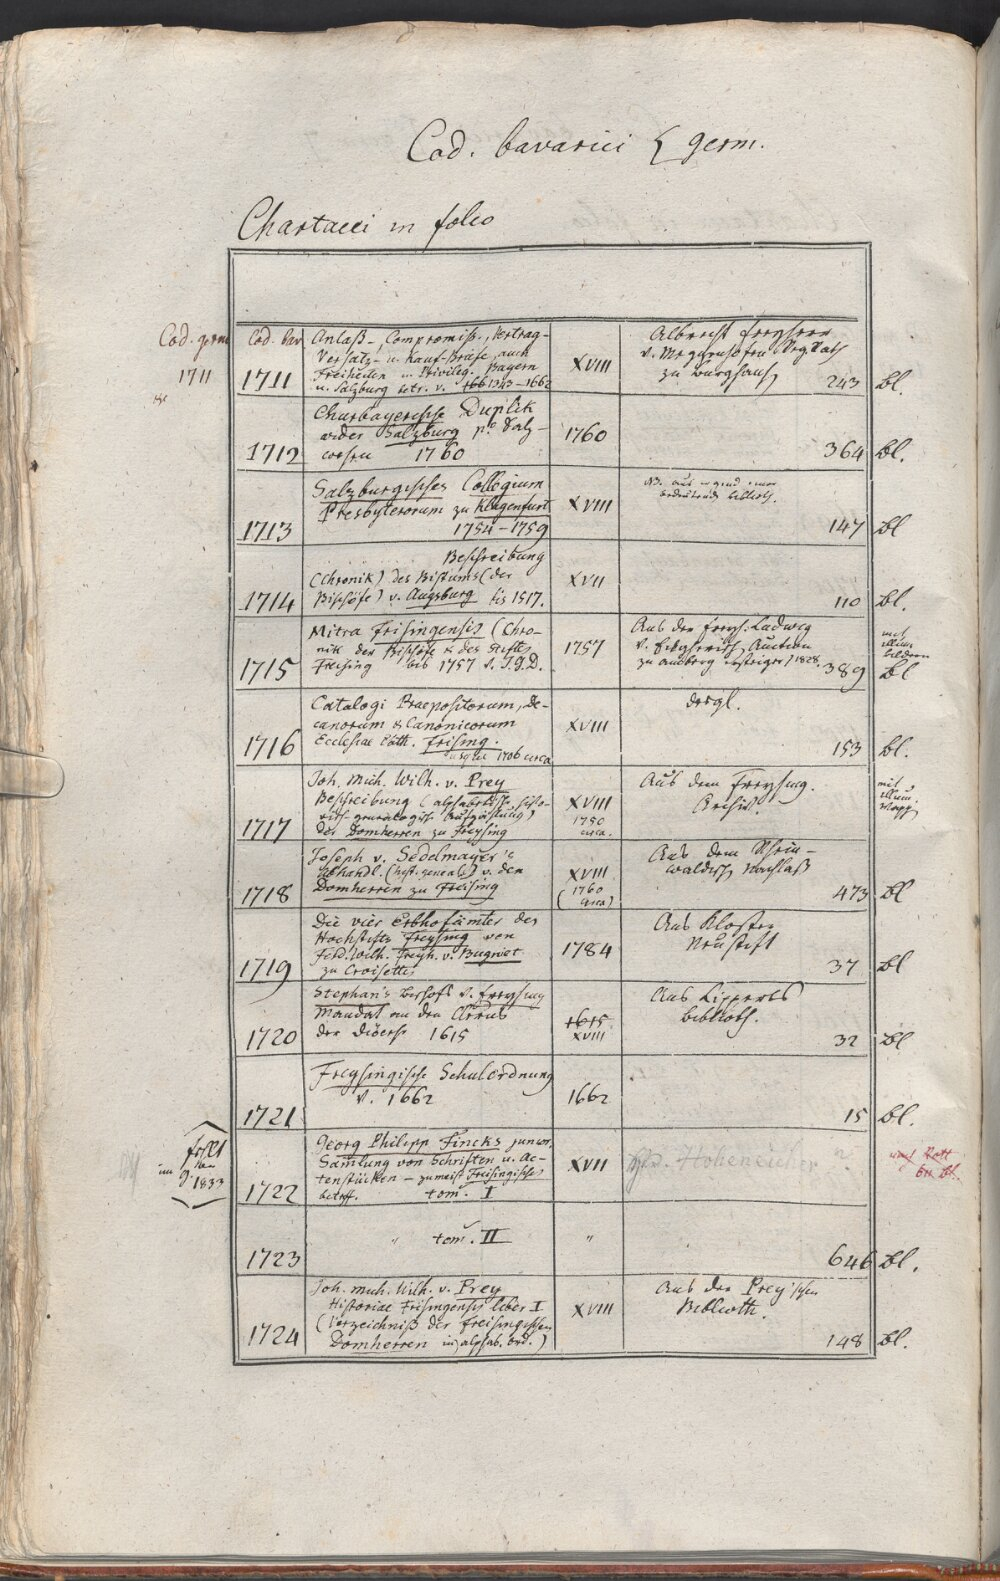 Cod. bavarici { germ.
Chartacei in folio
Cod. germ
1711
Cod. bav
1711
Anlaß-, Compromiß-, Vertrag-
Versatz- u. Kauf-Briefe, auch
Freiheiten u. Privileg. Bayern
u. Salzburg betr. v. 1343-1662
XVIII
Albrecht Freyherr
v. Meggenhofen Reg. Rath
zu Burghausen
243 bl.
1712
Churbayerische Duplik
wider Salzburg pto Salz-
wesen 1760
1760
364 bl.
1713
Salzburgisches Collegium
Presbyterorum zu Klagenfurt
1754-1759
XVIII
NB. aus
bedeutend biblioth.
147 bl
1714
Beschreibung
(Chronik) des Bistums (der
Bischöfe) v. Augsburg bis 1517.
XVII
110 bl.
1715
Mitra Frisingensis (Chro-
nik der Bischöfe & des Stifts
Freising bis 1757 v. J.G.D.
1757
Aus der Freyh. Ludwig
v. Auction
zu Amberg ersteigert 1828.
389 bl
mit
illum.
bildern
1716
Catalogi Praepositorum, De-
canorum & Canonicorum
Ecclesiae Cath. Frising.
usque 1706 circa
XVIII
desgl.
153 bl.
1717
Joh. Mich. Wilh. v. Prey
Beschreibung (alphabetische histo-
risch-genealogisch. Aufzählung)
der Domherren zu Freysing
XVIII
1750
circa.
Aus dem Freysing.
Archiv.
mit
illum.
Wapp.
1718
Joseph v. Sedelmayer's
Abhandl. (hist. geneal.) v. den
Domherren zu Freising
XVIII
(1760
circa)
Aus dem Rhein-
waldisch Nachlaß
473 bl
1719
Die vier Erbhofämter des
Hochstifts Freysing von
Ferd. Wilh. Freyh. v. Bugniet
zu Croisettes
1784
Aus Kloster
Neustift
37 bl
1720
Stephan's Bischofs v. Freysing
Mandat an den Clerus
der Diöcese 1615
1615
XVIII
Aus Lipperts
Biblioth.
32 bl
1721
Freysingische Schulordnung
v. 1662
1662
15 bl.
fehlt
im
J. 1833
1722
Georg Philipp Fincks junior
Samlung von Schriften u. Ac-
tenstücken - zumeist Freisingisches
betreff. tom. I
XVII
Hoheneicher
1723
" tom. II
"
646 bl.
1724
Joh. Mich. Wilh. v. Prey
Historiae Frisingensis liber I
(Verzeichniß der freisingischen
Domherren in alphab. Ord.)
XVIII
Aus der Prey'schen
Biblioth.
148 bl.